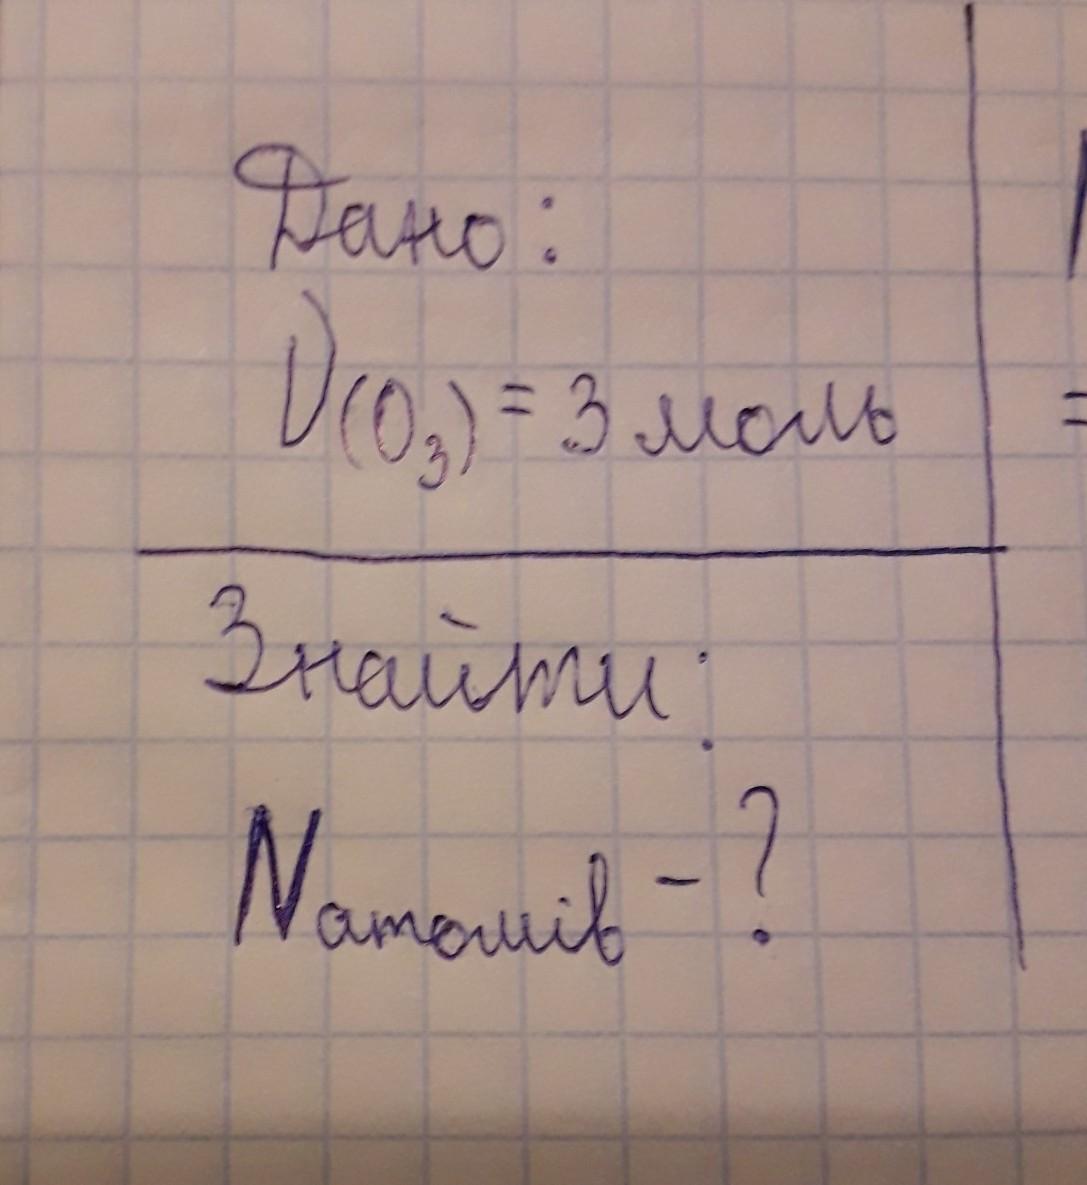 Дано:
ν(O₃) = 3 моль
=
Знайти:
Nатомів - ?